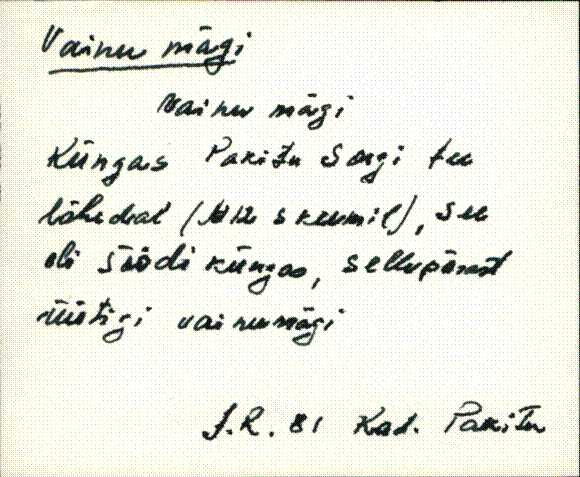 Vainu mägi
Vainu mägi
Küngas Pakitu Sargi tee
lähedal (Nr 12 skeemil), see
oli söödi küngas, sellepärast
üütigi vainumägi
J.R. 81 Kad. Pakitu